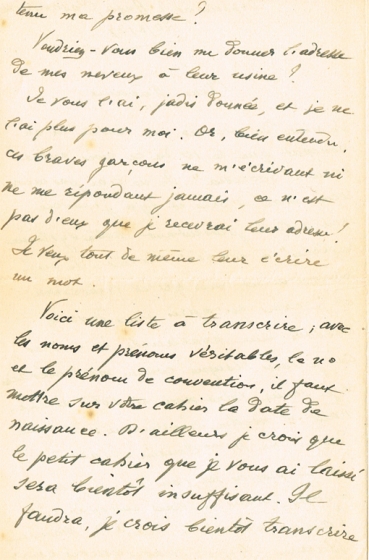 tenu ma promesse?
Voudriez-vous bien me donner l'adresse
de mes neveux à leur usine?
Je vous l'ai, jadis donnée, et je ne
l'ai plus pour moi. Or, bien entendu,
ces braves garçons ne m'écrivant ni
ne me répondant jamais, ce n'est
pas d'eux que je recevrai leur adresse!
Je veux tout de même leur écrire
un mot.
Voici une liste à transcrire; avec
les noms et prénoms véritables, le no
et le prénom de convention, il faux
mettre sur votre cahier la date de
naissance. D'ailleurs je crois que
le petit cahier que je vous ai laissé
sera bientôt insuffisant. Il
faudra, je crois bientôt transcrire